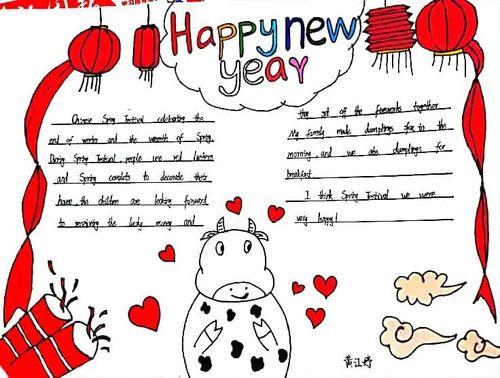 Happy new
year
Chinese Spring Festival celebrating the
end of winter and the warmth of Spring.
During Spring Festival, people use red lantern
and Spring couplets to decorate their
home the children are looking forward
to receiving the lucky money and
set off the fireworks together
My family made dumplings for in the
morning, and we ate dumplings for
breakfast
I think Spring Festival we were
very happy!
黄江妤